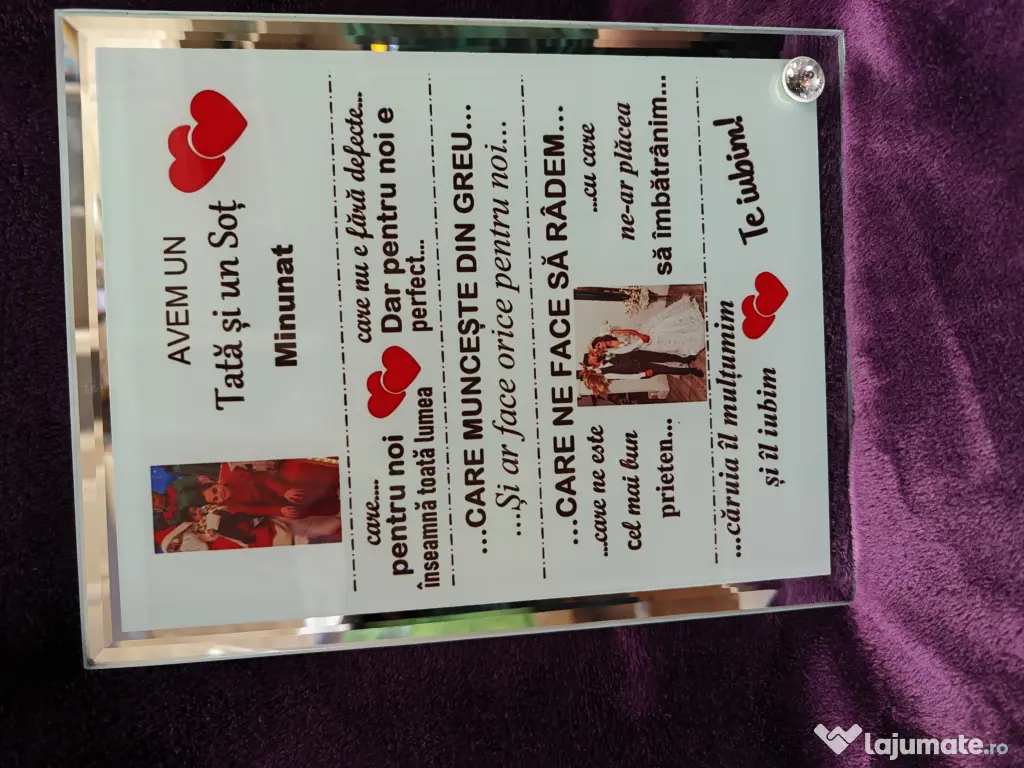 AVEM UN
Tată și un Soț
Minunat
care.... care nu e fără defecte...
pentru noi Dar pentru noi e
înseamnă toată lumea perfect...
...CARE MUNCEȘTE DIN GREU...
...Și ar face orice pentru noi...
...CARE NE FACE SĂ RÂDEM...
...care ne este
cel mai bun
prieten...
...cu care
ne-ar plăcea
să îmbătrânim...
...căruia îl mulțumim
și îl iubim
Te iubim!
lajumate.ro